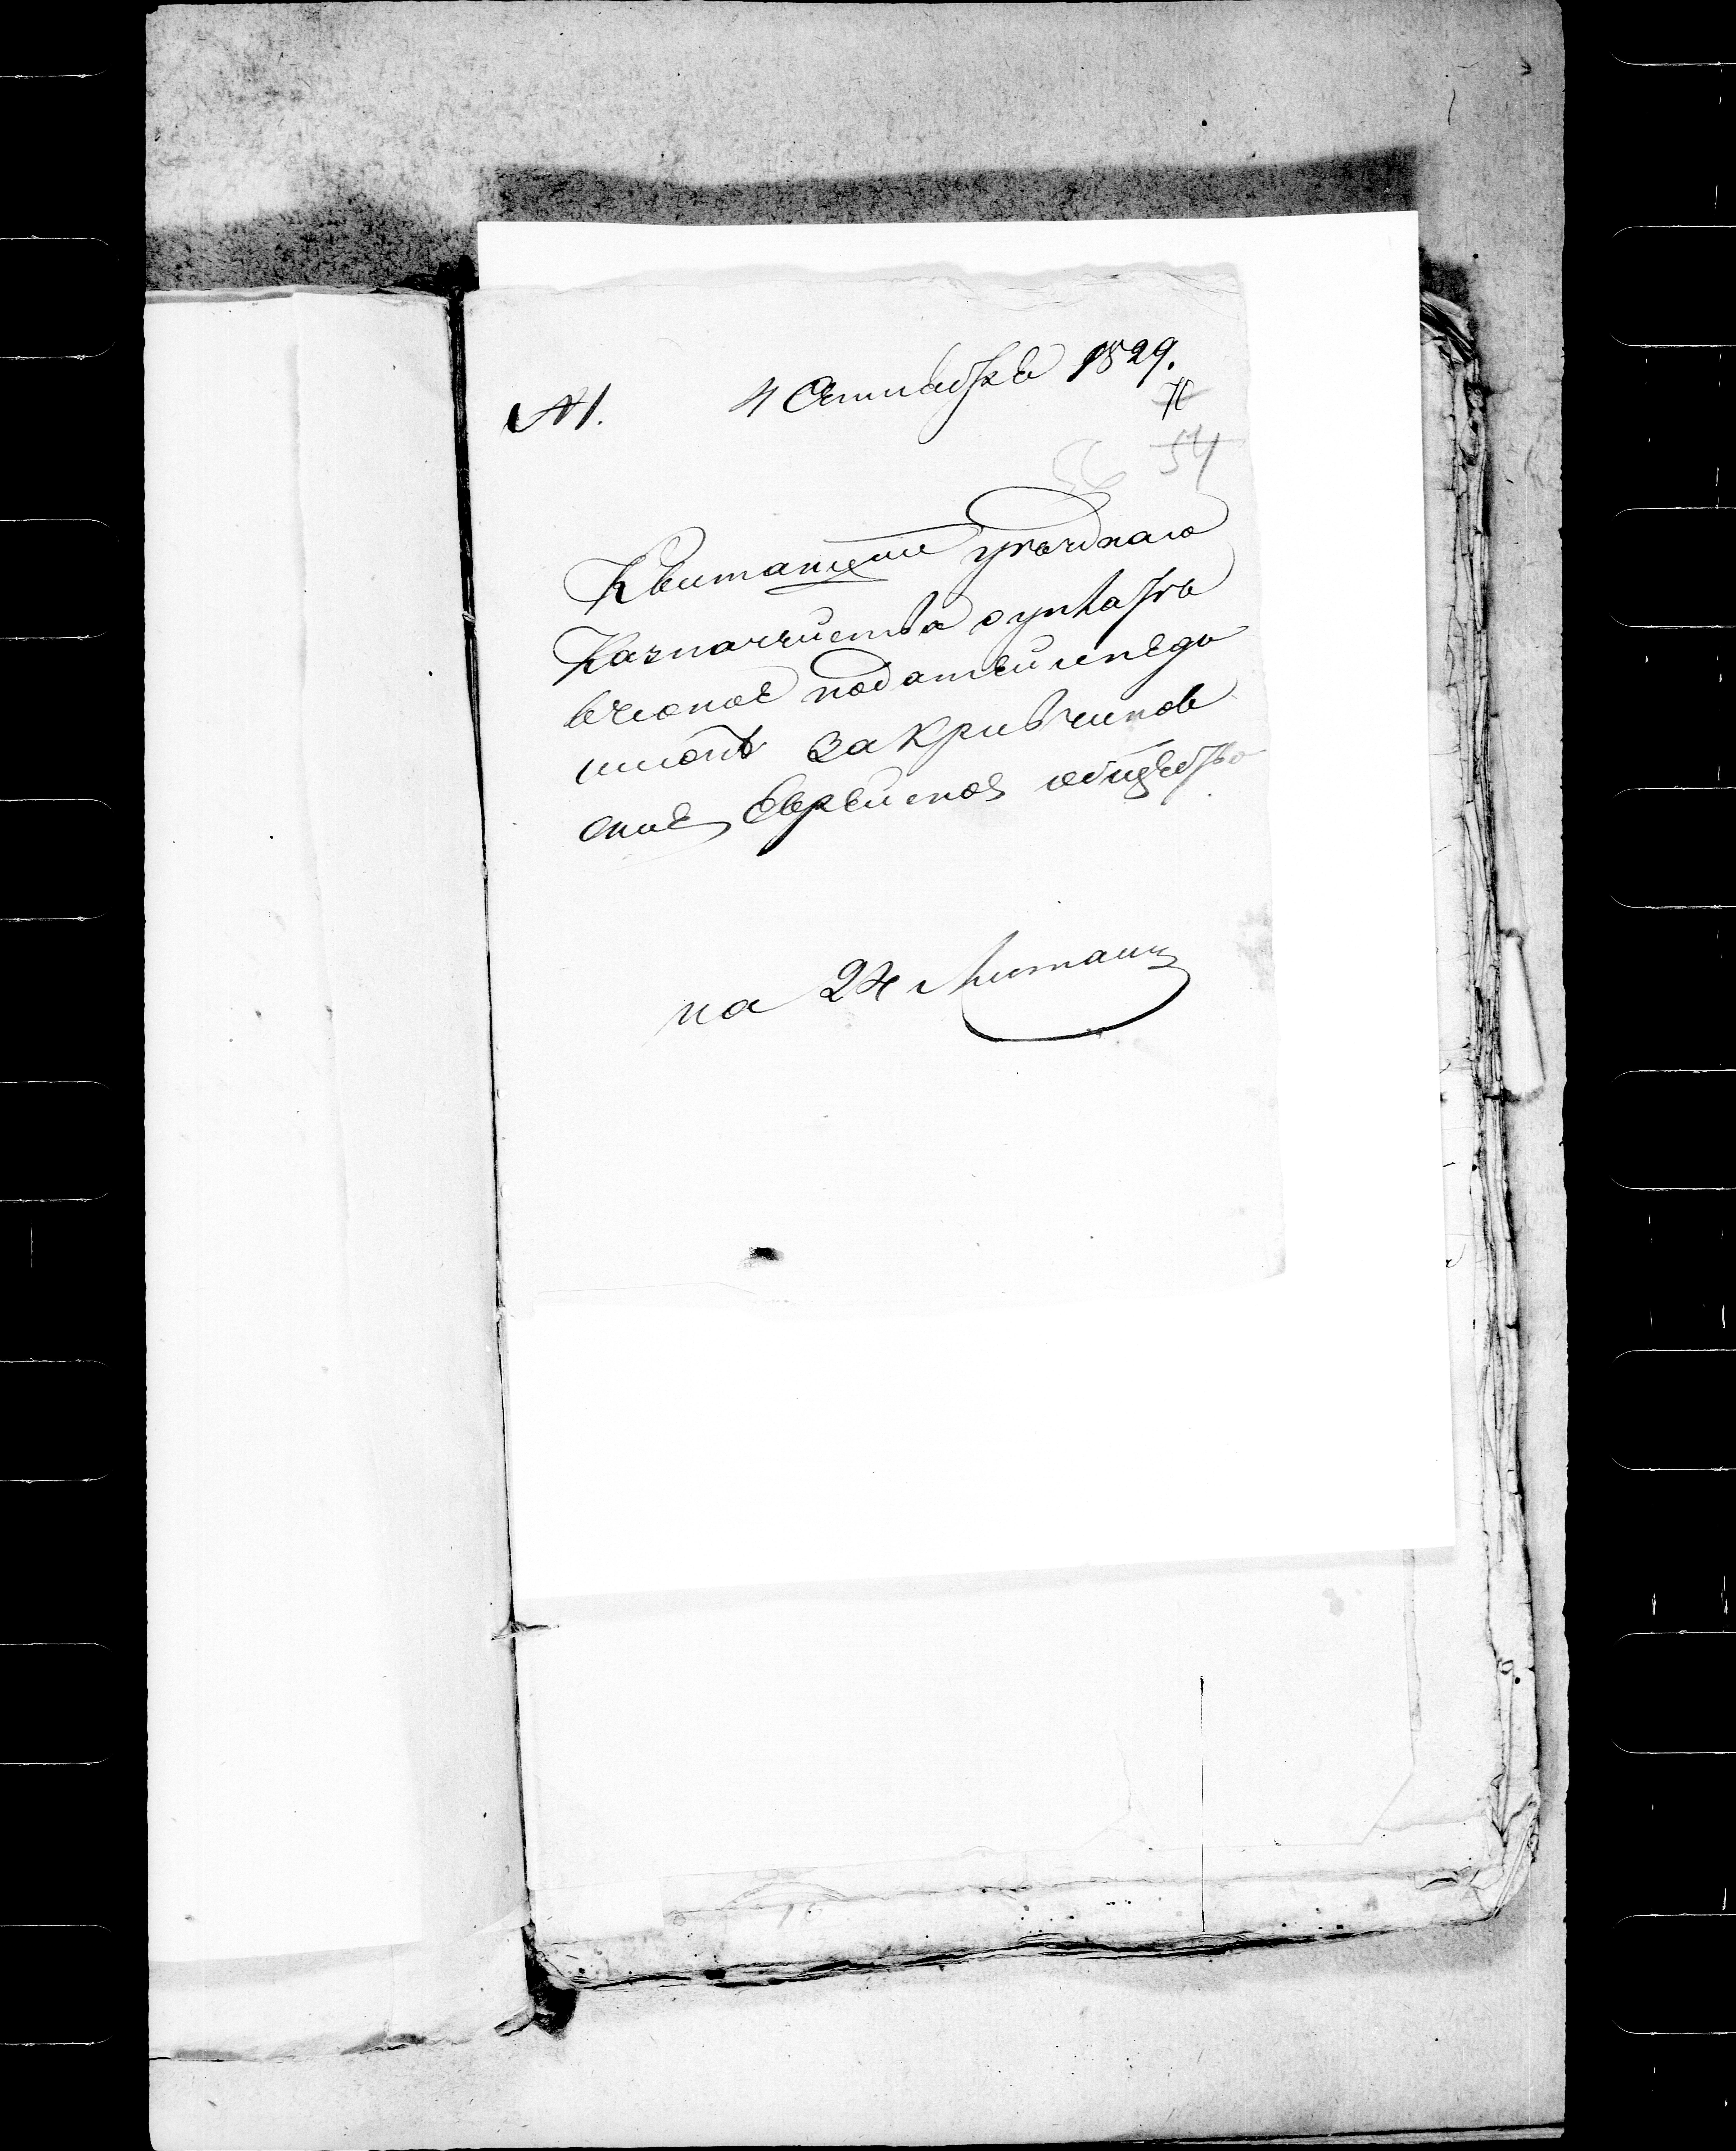 № 1. 4 Октября 1829.
54
56
Квитанции уезднаго
Казначейства о уплате
вченое податей и недо
имокъ за Кривчинов
ское Еврейское общество
на 24 листахъ